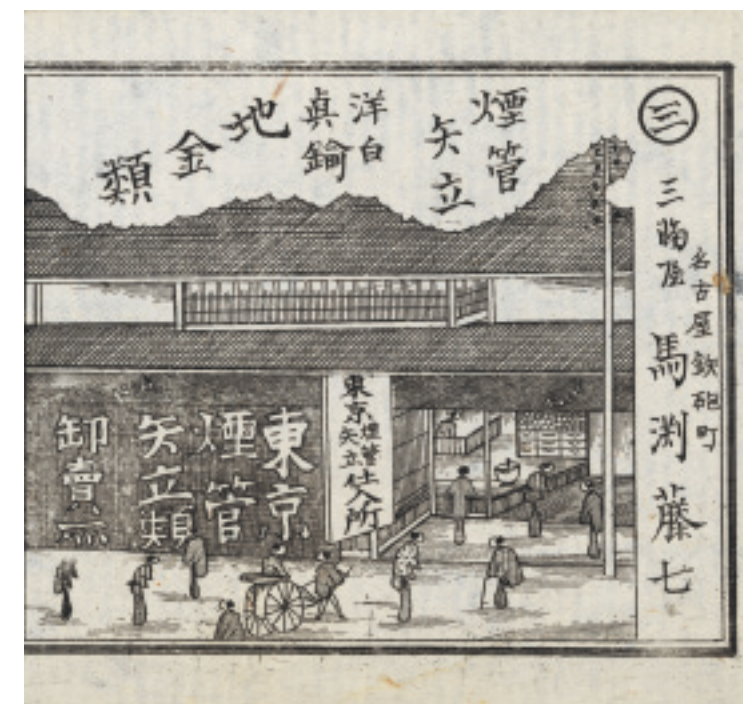 三
名古屋鉄砲町
馬渕藤七
煙管
矢立
洋白
真鍮
地金類
東京煙管矢立仕入所
東京
煙管
矢立類
卸賣所